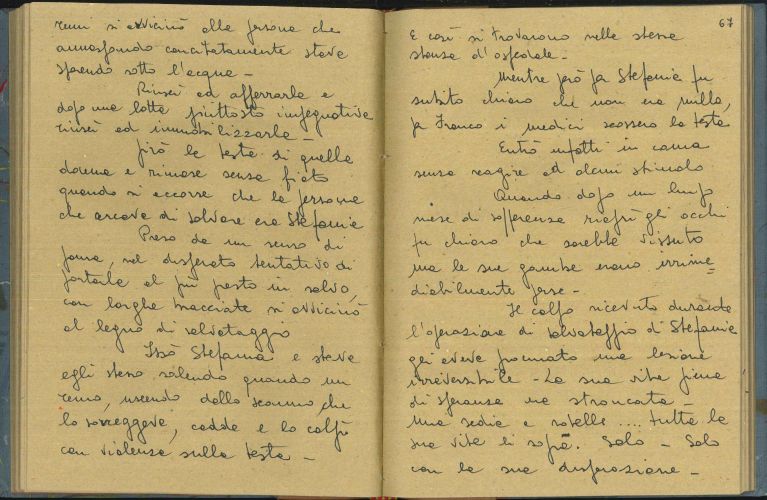 remi si avvicinò alla persona che
annaspando concitatamente stava
sparendo sotto l'acqua -
Riuscì ad afferrarla e
dopo una lotta piuttosto impegnativa
riuscì ad immobilizzarla -
Girò la testa di quella
donna e rimase senza fiato
quando si accorse che la persona
che cercava di salvare era Stefania
Preso da un senso di
paura, nel disperato tentativo di
portarla al più presto in salvo,
con larghe bracciate si avvicinò
al legno di salvataggio
Issò Stefania e stava
egli stesso salendo quando un
remo, uscendo dallo scanno che
lo sorreggeva, cadde e lo colpì
con violenza sulla testa -
67
E così si trovarono nella stessa
stanza d'ospedale -
Mentre però fra Stefania fu
subito chiaro che non era nulla,
fra Franco i medici scossero la testa
Entrò infatti in coma
senza reagire ad alcuni stimolo
Quando dopo un lungo
mese di sofferenza riaprì gli occhi
fu chiaro che sarebbe vissuto
ma le sue gambe erano irrime=
diabilmente perse -
Il colpo ricevuto durante
l'operazione di salvataggio di Stefania
gli aveva procurato una lesione
irreversibile - La sua vita piena
di speranza era stroncata -
Una sedia a rotelle .... tutta la
sua vita lì sopra. Solo - Solo
con la sua disperazione -